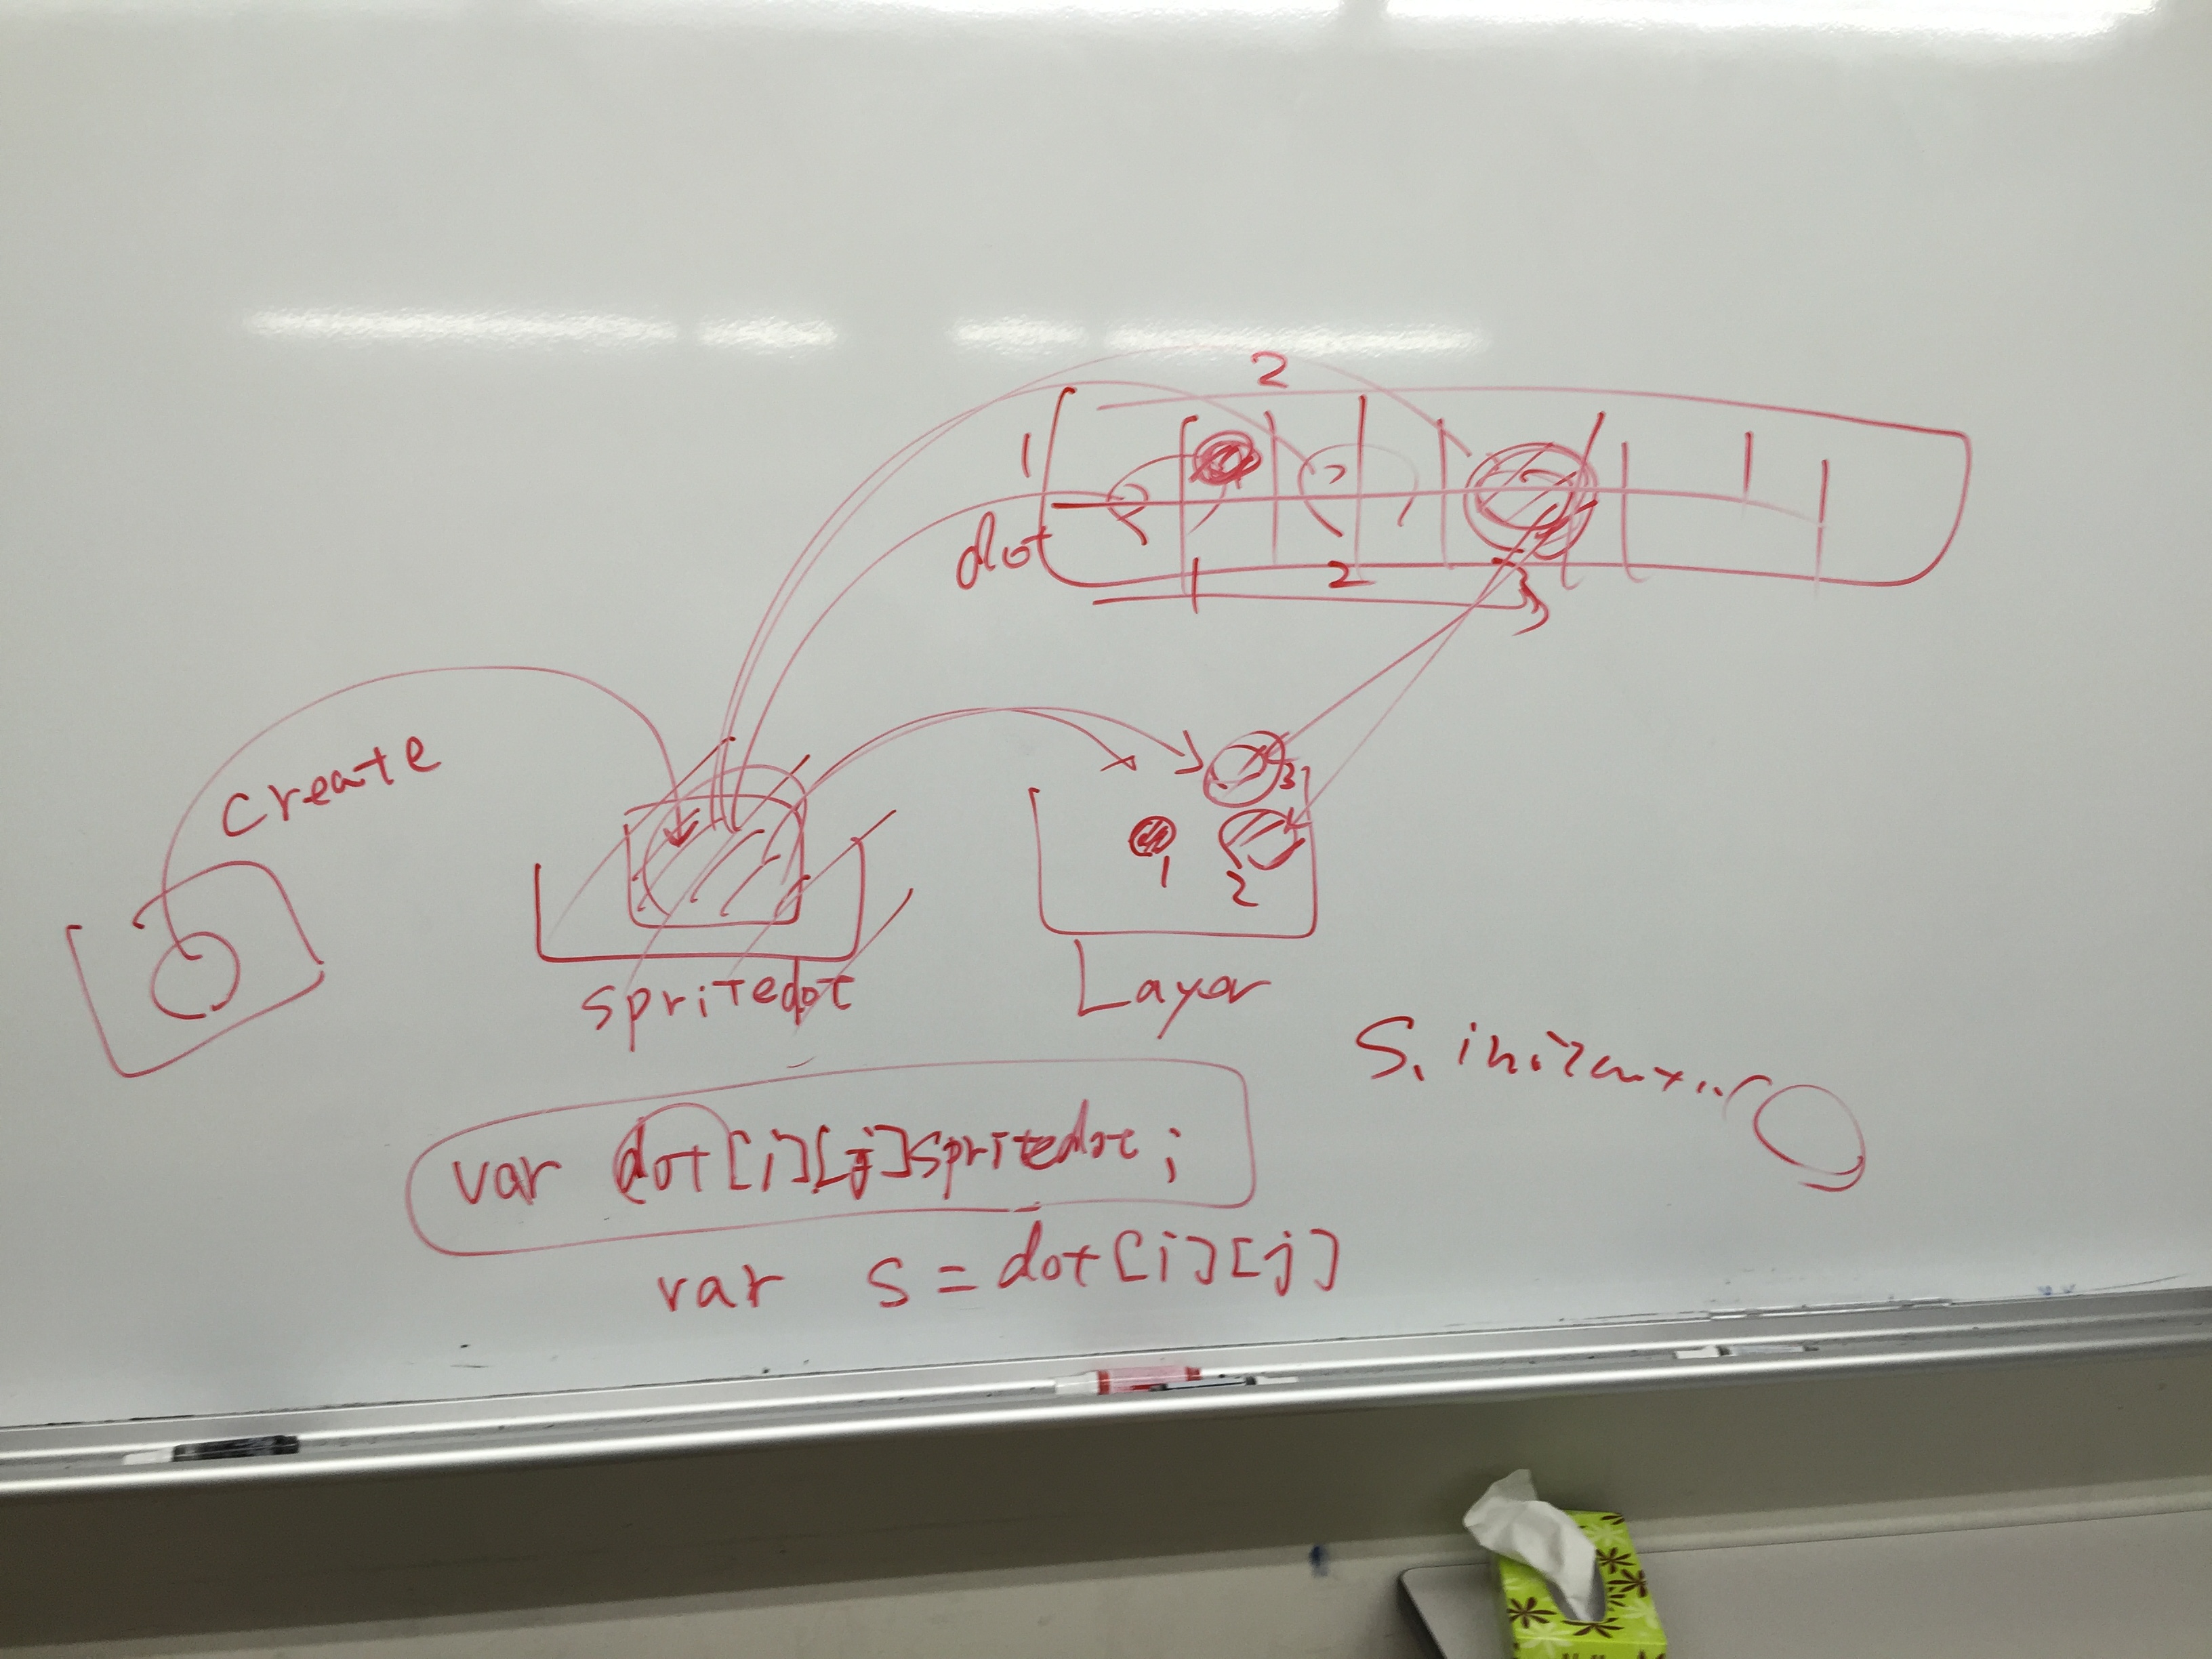 2
1
dot
1 2 3
Create
3
1 2
spritedot
Layer
S.
var dot[i][j]spritedot;
var s=dot[i][j]